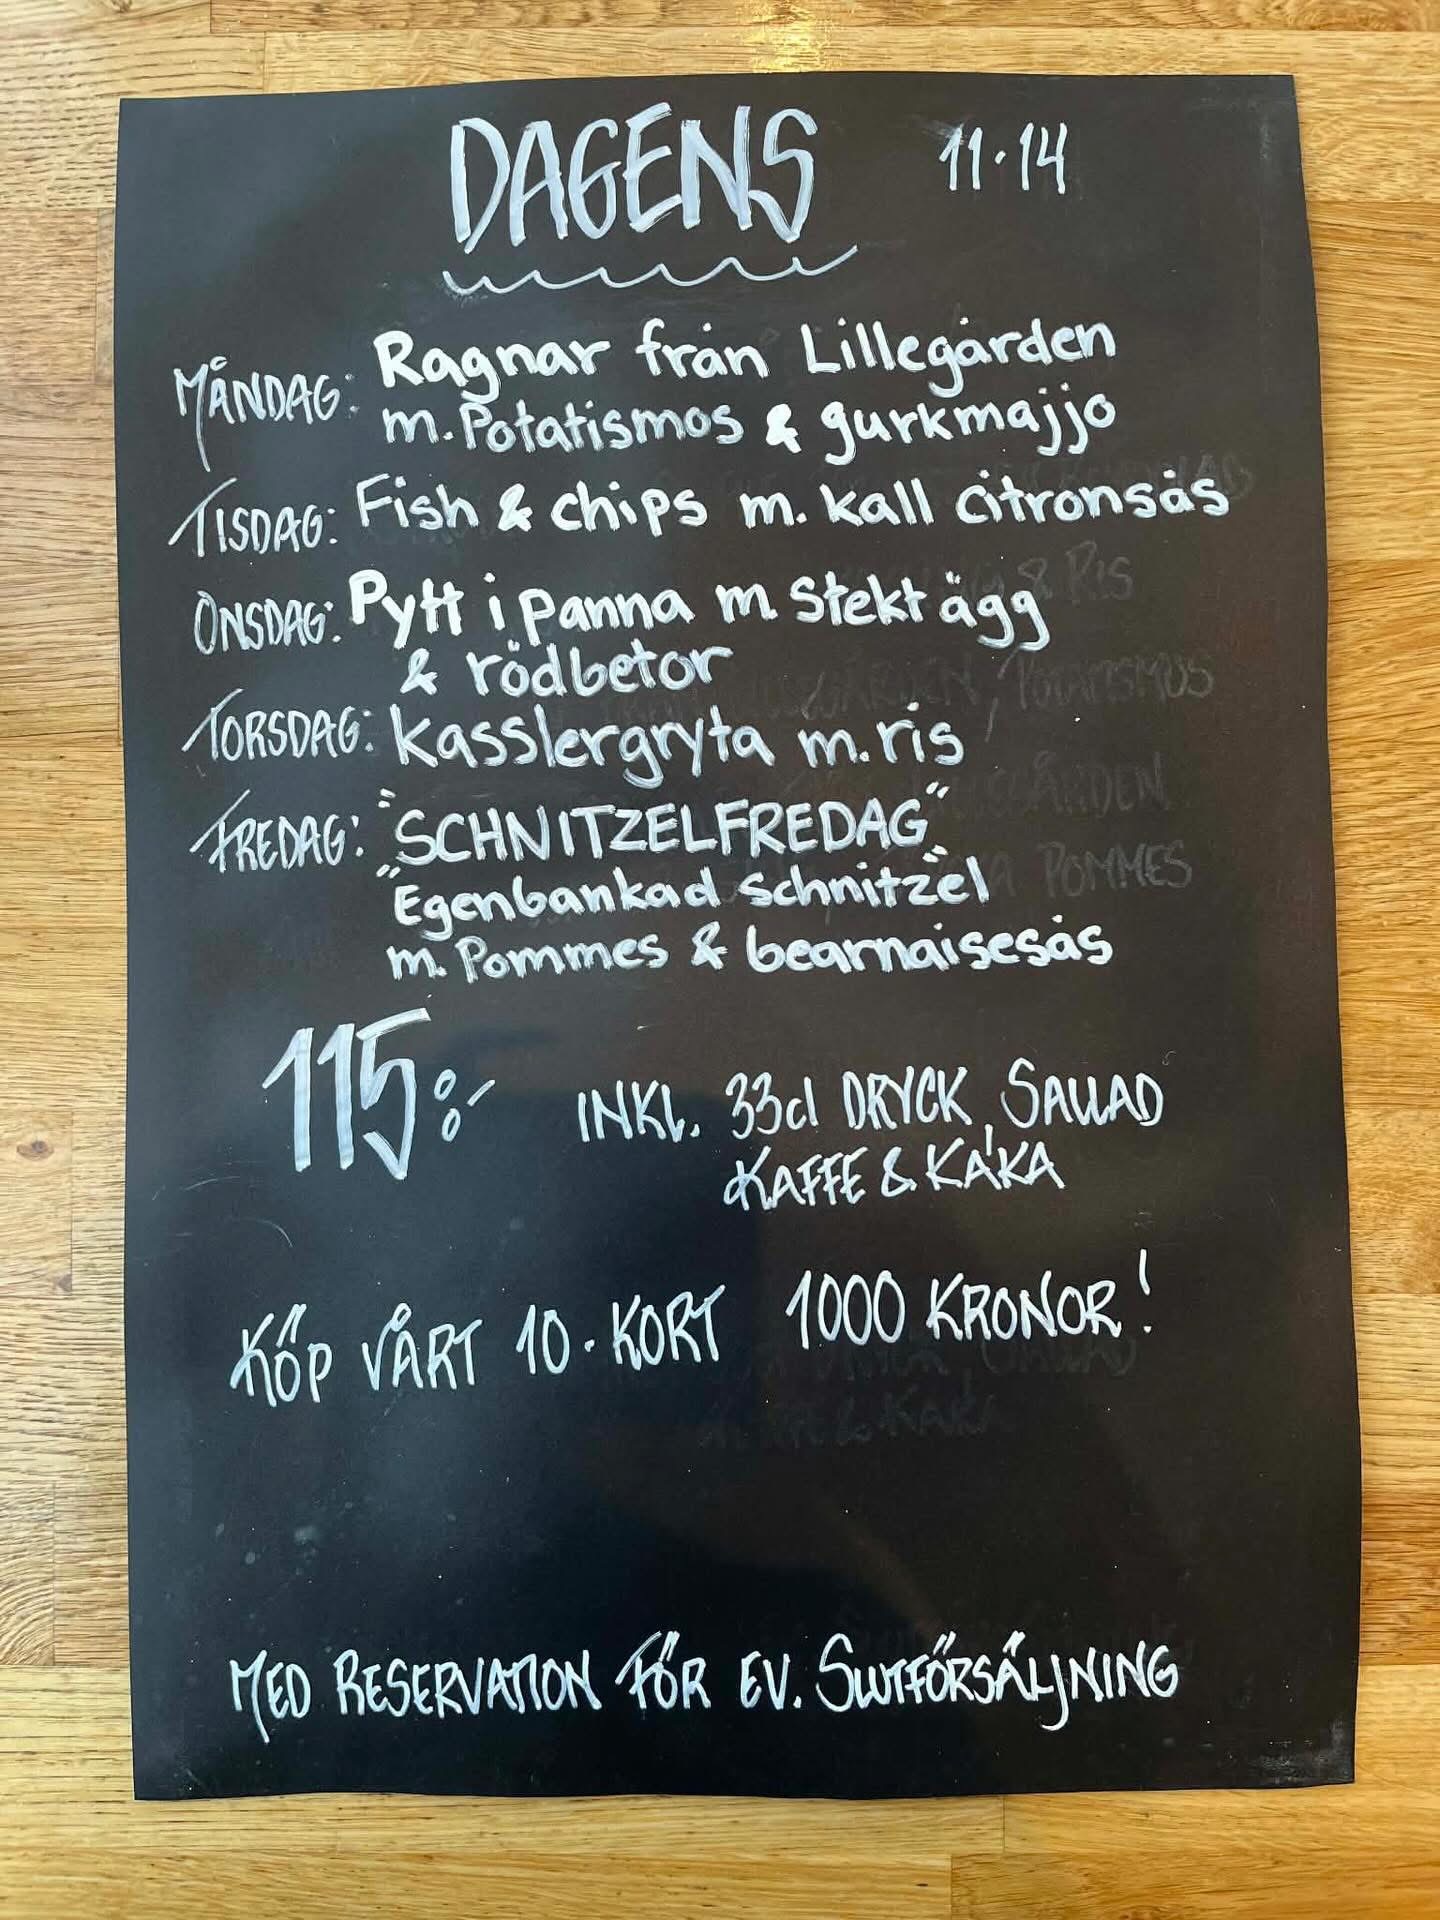 DAGENS 11-14
MÅNDAG: Ragnar från Lillegården
m. Potatismos & gurkmajjo
TISDAG: Fish & chips m. kall citronsås
ONSDAG: Pytt i panna m stekt ägg
& rödbetor
TORSDAG: Kasslergryta m. ris
FREDAG: "SCHNITZELFREDAG"
"Egenbankad schnitzel"
m. Pommes & bearnaisesås
115:- INKL. 33cl DRYCK, SALLAD
KAFFE & KAKA
KÖP VÅRT 10-KORT 1000 KRONOR!
MED RESERVATION FÖR EV. SLUTFÖRSÄLJNING